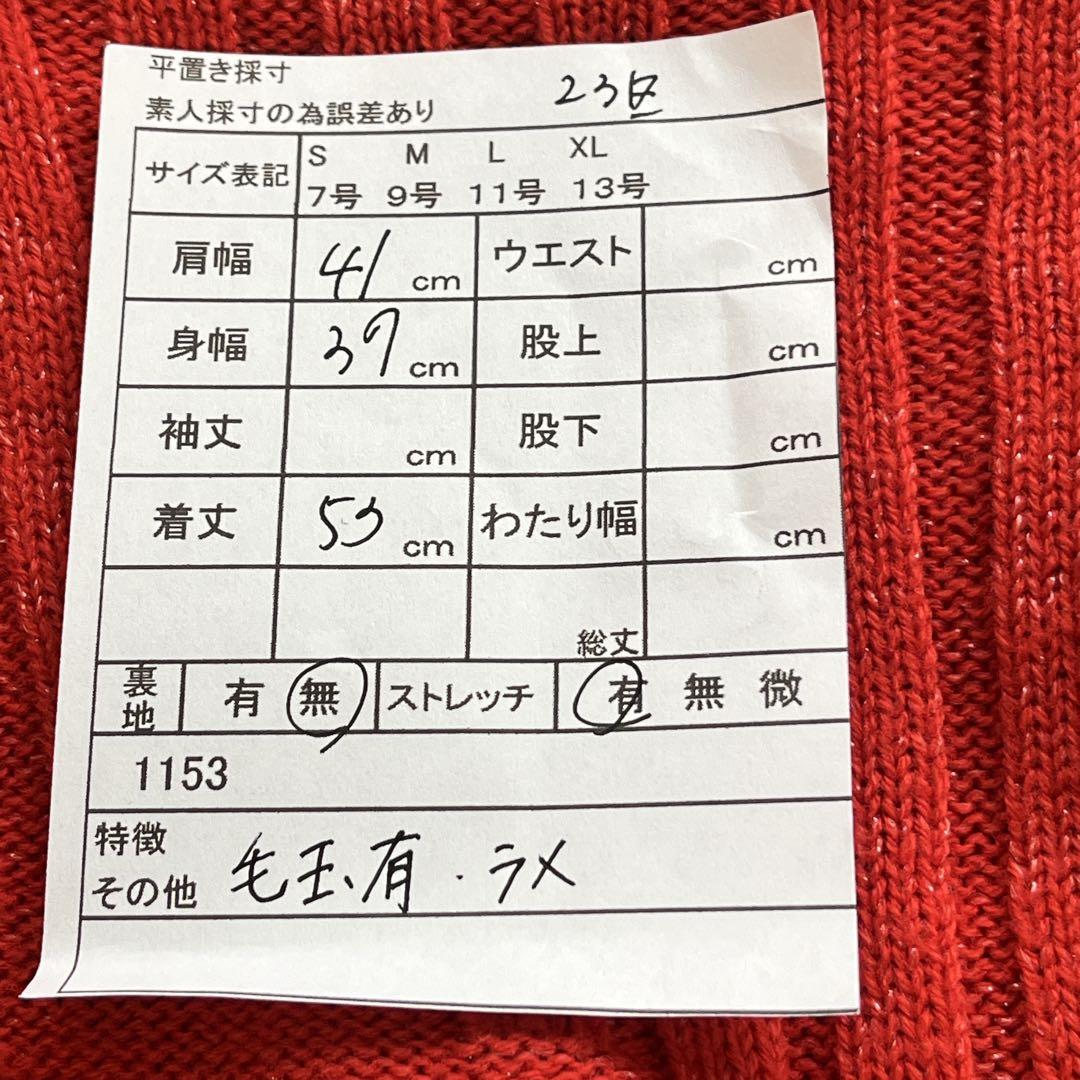 平置き採寸
素人採寸の為誤差あり 23区
サイズ表記 S M L XL
7号 9号 11号 13号
肩幅 41 cm ウエスト cm
身幅 39 cm 股上 cm
袖丈 cm 股下 cm
着丈 53 cm わたり幅 cm
総丈
裏地 有 無 ストレッチ 有 無 微
1153
特徴
その他 毛玉有・ラメ